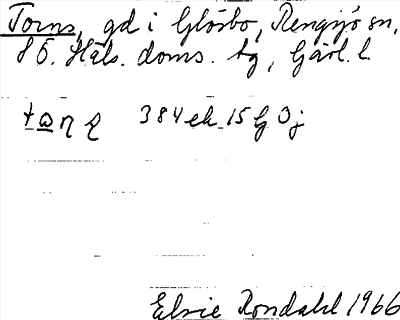 Torns, gd i Glösbo, Rengsjö sn,
S Ö. Häls. doms. tg, Gävl. l.
384 ek. 15 G 0 j
Elsie Rondahl 1966